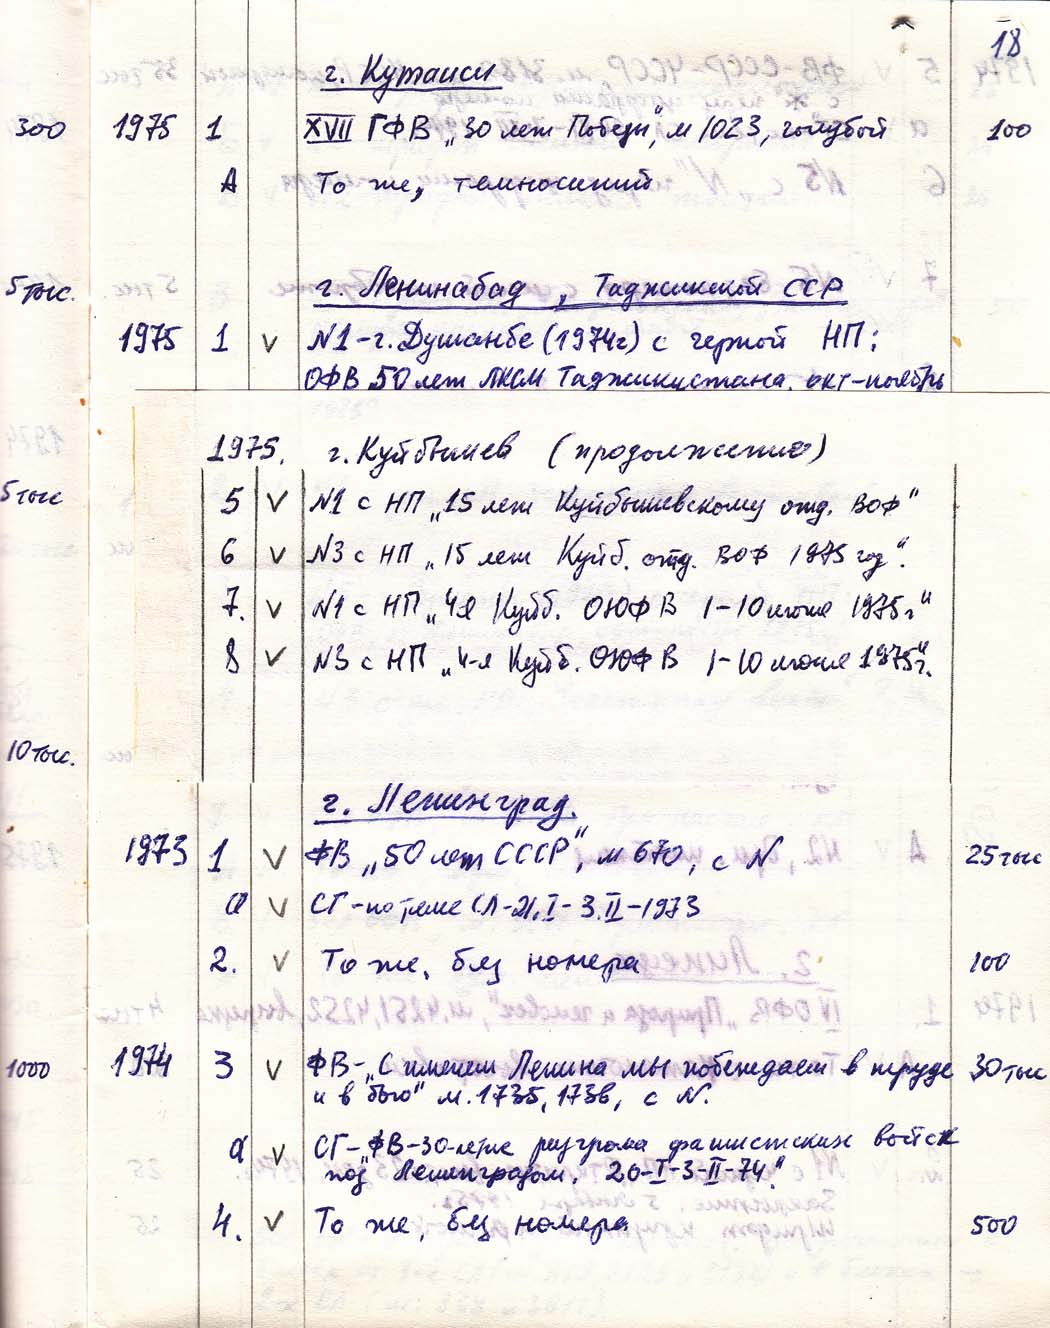 18
г. Кутаиси
300 1975 1 XVII ГФВ „30 лет Победы", м 1023, голубой 100
А То же, темносиний
5 тыс. г. Ленинабад, Таджикской ССР
1975 1 v N1-г. Душанбе (1974г) с черной НП:
ОФВ 50 лет ЛКСМ Таджикистана. окт-ноябрь
1975. г. Куйбышев (продолжение)
5 тыс 5 v N1 с НП „15 лет Куйбышевскому отд. ВОФ"
6 v N3 с НП „15 лет Куйб. отд. ВОФ 1975 год".
7. v N1 с НП „4я Куйб. ОЮФВ 1-10 июня 1975г"
8 v N3 с НП „4-я Куйб. ОЮФВ 1-10 июня 1975г".
10 тыс.
г. Ленинград.
1973 1 v ФВ „50 лет СССР", м 670, с N 25 тыс
а v СГ-по теме
2. v То же, без номера 100
1000 1974 3 v ФВ-„С именем Ленина мы побеждаем в труде 30 тыс
и в бою" м. 1735, 1736, с N.
а v СГ-„ФВ-30-летие разгрома фашистских войск
под Ленинградом. 20-I-3-II-74."
4. v То же, без номера 500